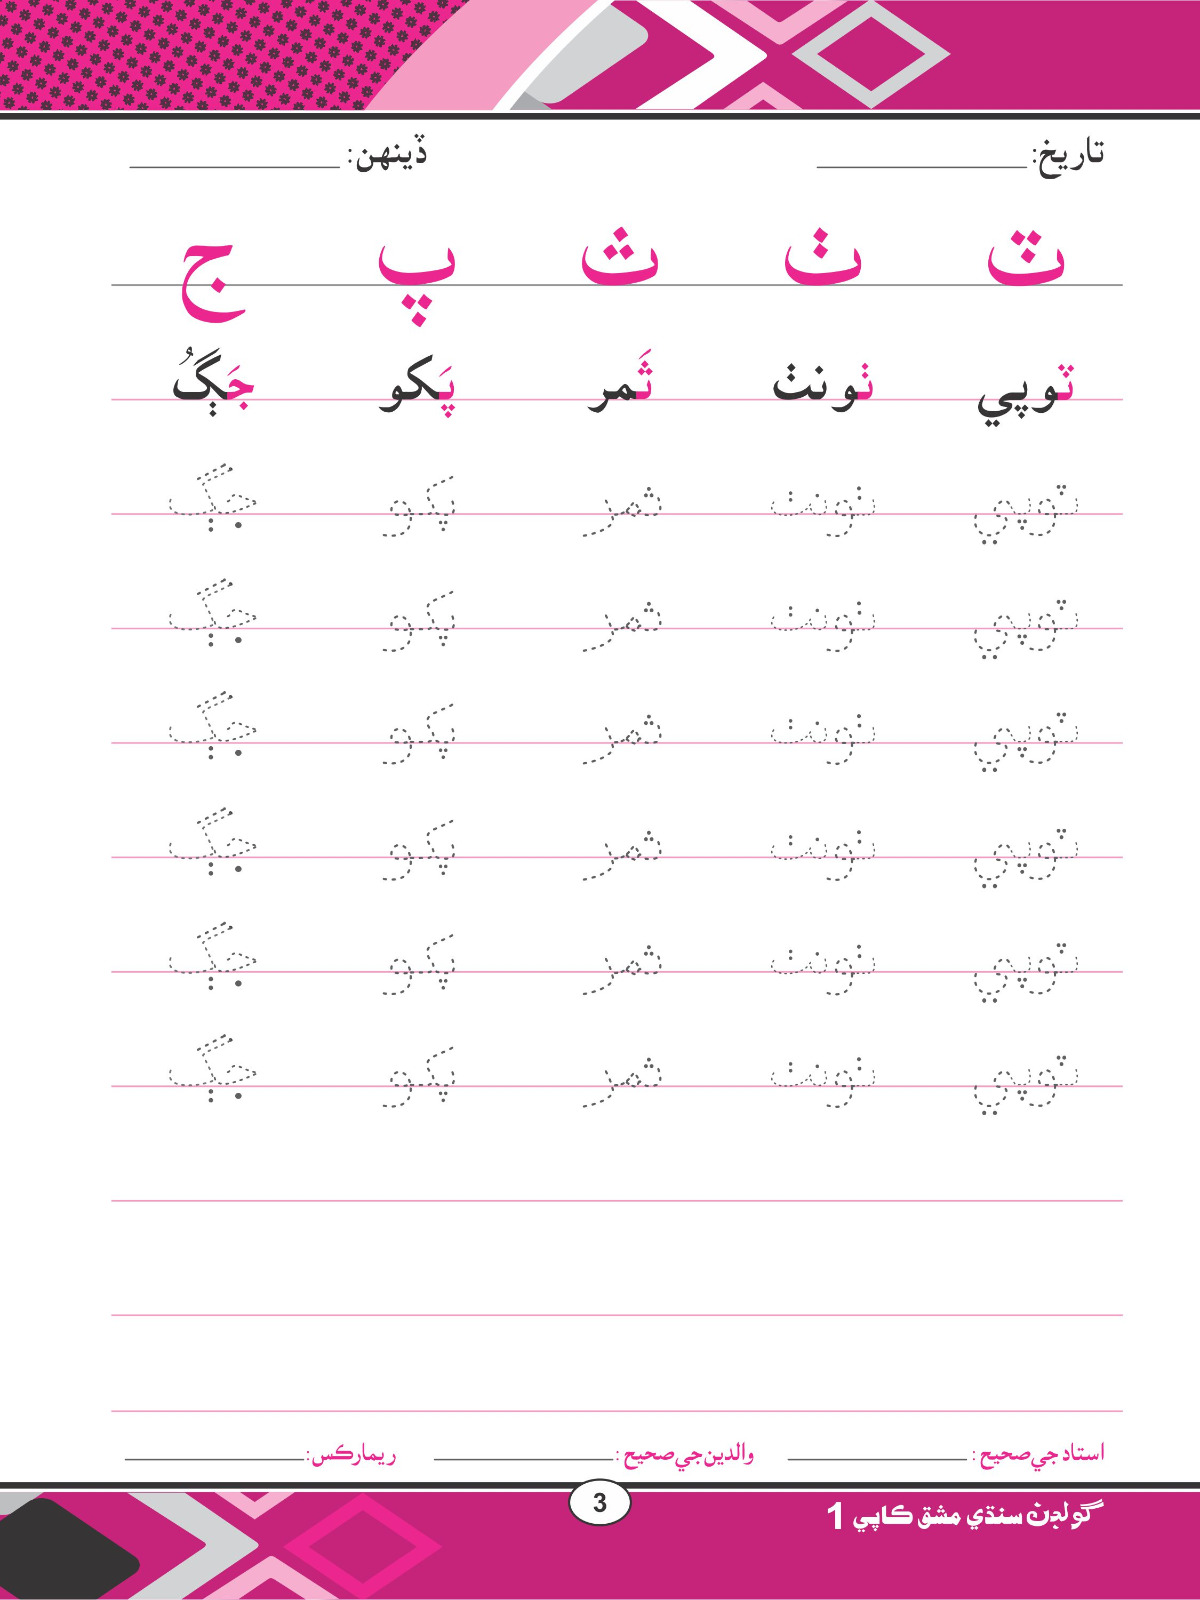 تاريخ: ڏينهن:
ٽ ٺ ث پ ج
ٽوپي ٺونٺ ثَمر پَکو جَڳُ
ٽوپي ٺونٺ ثمر پکو جڳ
ٽوپي ٺونٺ ثمر پکو جڳ
ٽوپي ٺونٺ ثمر پکو جڳ
ٽوپي ٺونٺ ثمر پکو جڳ
ٽوپي ٺونٺ ثمر پکو جڳ
ٽوپي ٺونٺ ثمر پکو جڳ
استاد جي صحيح : والدين جي صحيح : ريمارڪس :
3
گولڊن سنڌي مشق ڪاپي 1